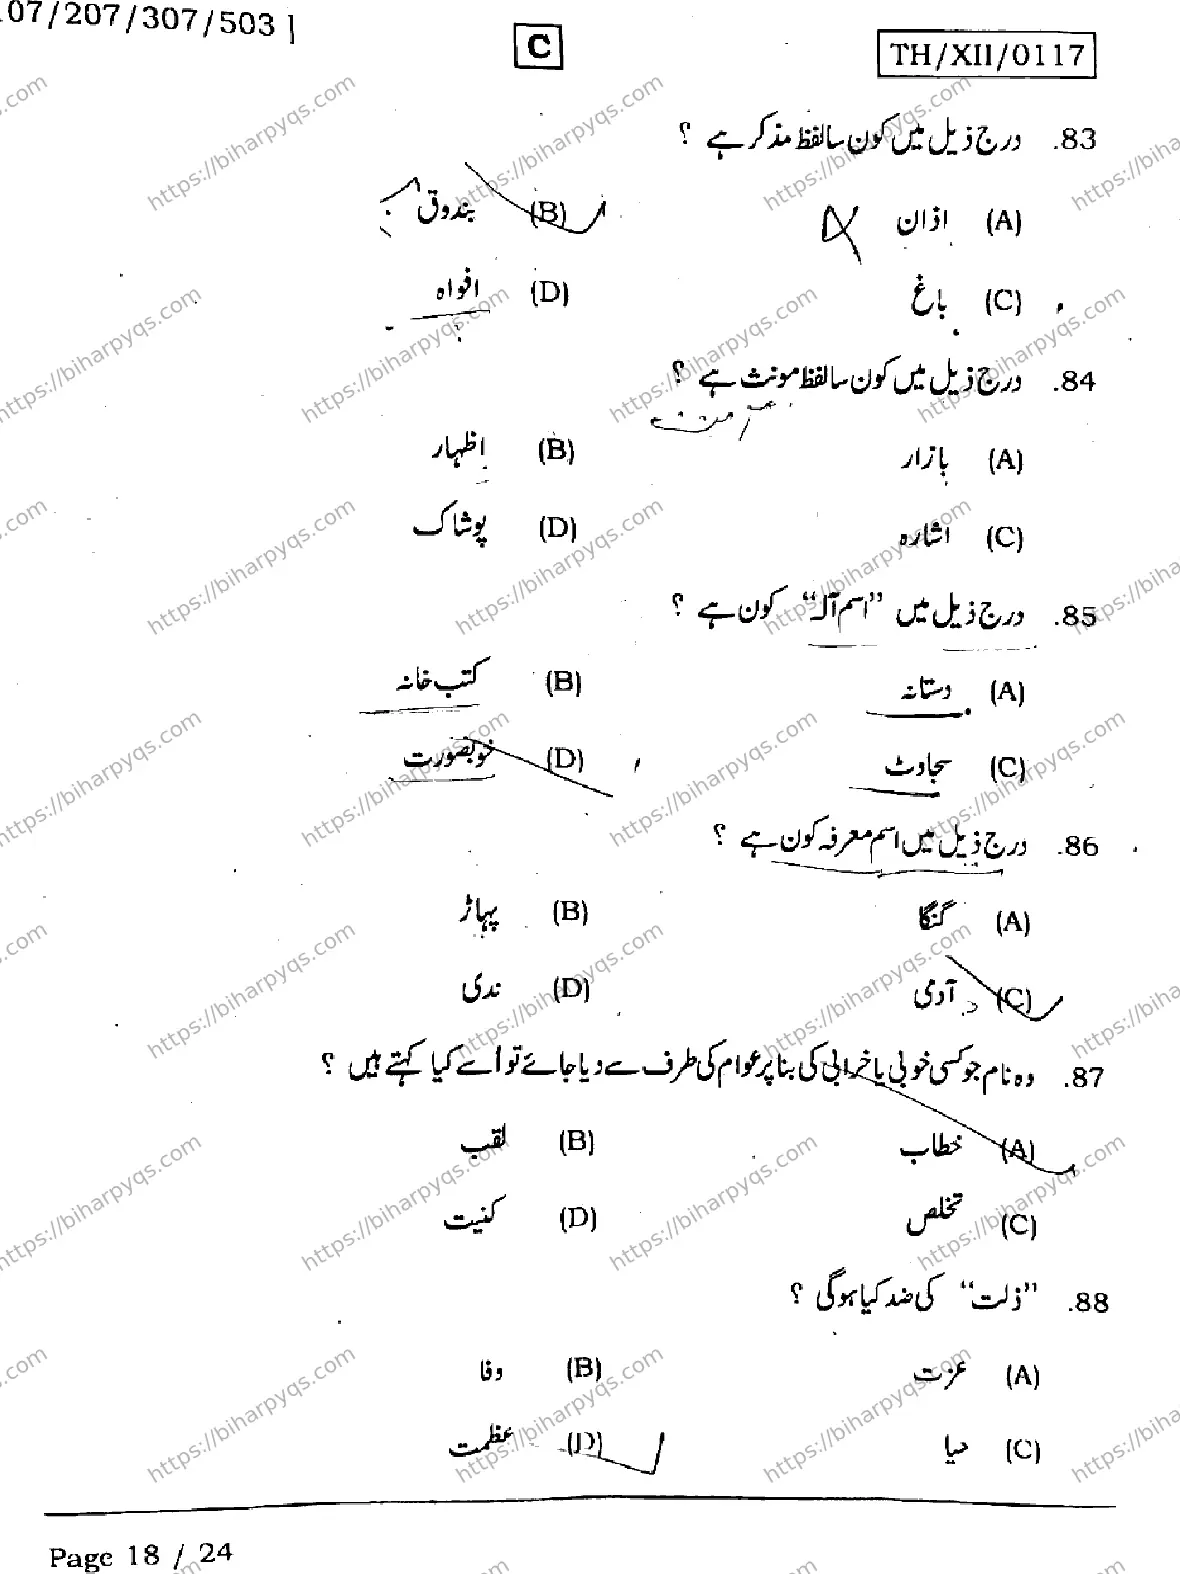 107/207/307/503 |
C
TH/XII/0117
83. درج ذیل میں کون سا لفظ مذکر ہے ؟
(A) اذان (B) بندوق
(C) باغ (D) افواہ
84. درج ذیل میں کون سا لفظ مونث ہے ؟
(A) بازار (B) اظہار
(C) اشارہ (D) پوشاک
85. درج ذیل میں "اسم آلہ" کون ہے ؟
(A) دستانہ (B) کتب خانہ
(C) سجاوٹ (D) خوبصورت
86. درج ذیل میں اسم معرفہ کون ہے ؟
(A) گنگا (B) پہاڑ
(C) آدمی (D) ندی
87. وہ نام جو کسی خوبی یا خرابی کی بنا پر عوام کی طرف سے دیا جائے تو اُسے کیا کہتے ہیں ؟
(A) خطاب (B) لقب
(C) تخلص (D) کنیت
88. "ذلت" کی ضد کیا ہوگی ؟
(A) عزت (B) وفا
(C) حیا (D) عظمت
Page 18 / 24
https://biharpyqs.com